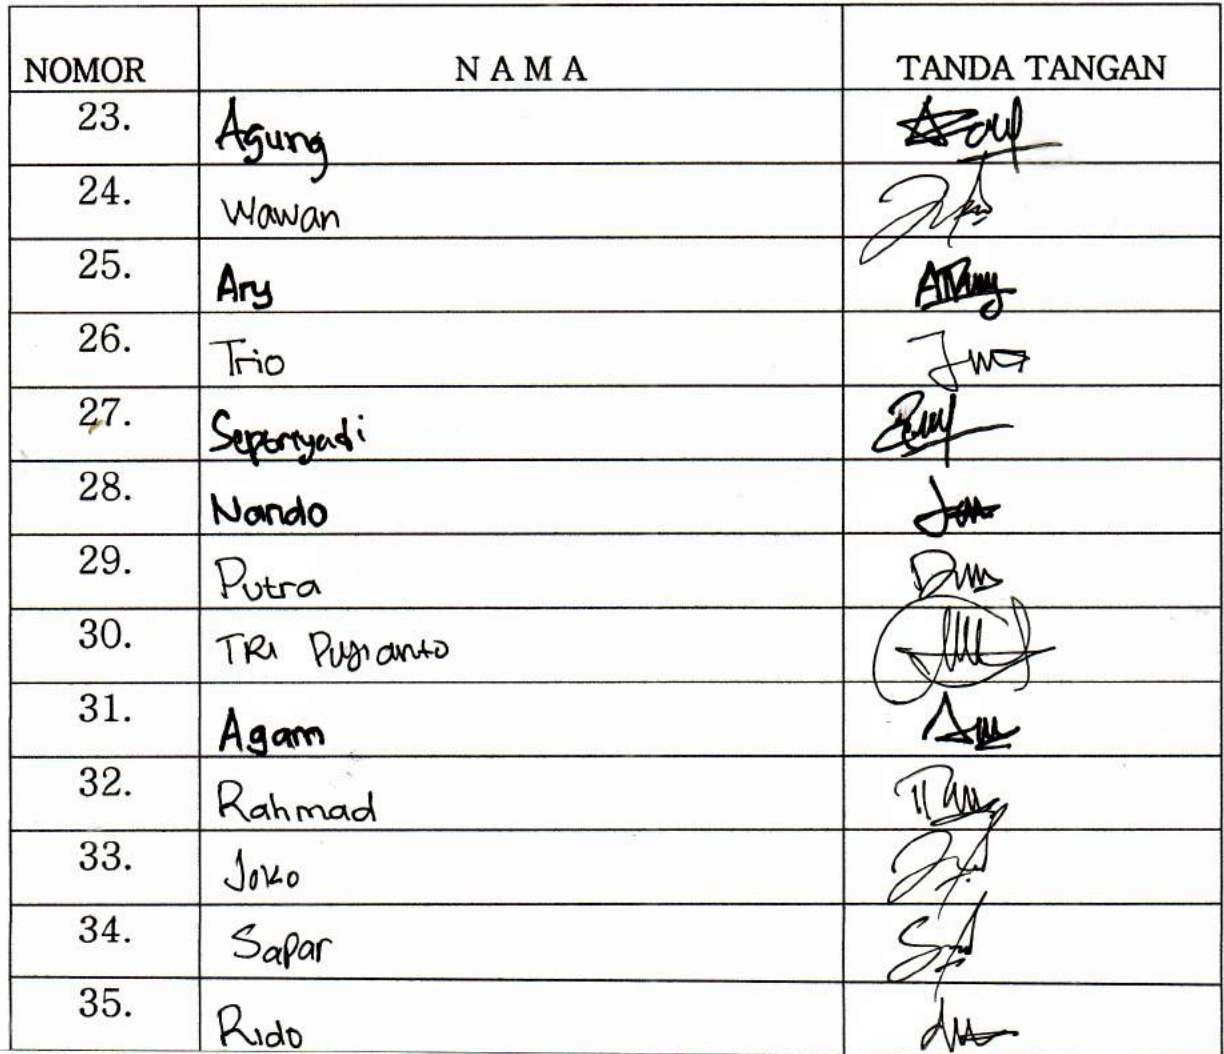 NOMOR N A M A TANDA TANGAN
23. Agung
24. Wawan
25. Ary
26. Trio
27. Septriyadi
28. Nando
29. Putra
30. TRI Pujianto
31. Agam
32. Rahmad
33. Joko
34. Sapar
35. Rido